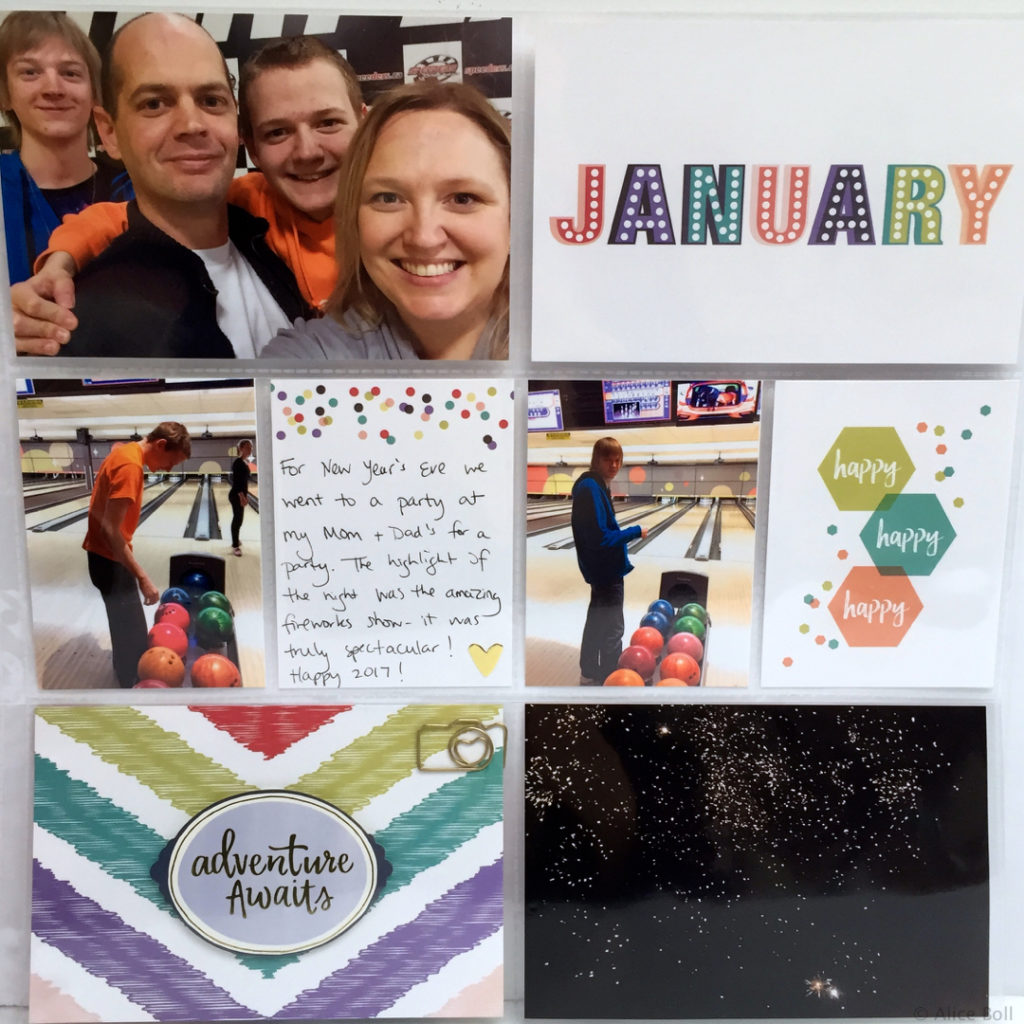 speeders.ca
speeders
JANUARY
For New Year's Eve we
went to a party at
my Mom + Dad's for a
party. The highlight of
the night was the amazing
fireworks show - it was
truly spectacular!
Happy 2017!
happy
happy
happy
adventure
Awaits
© Alice Boll